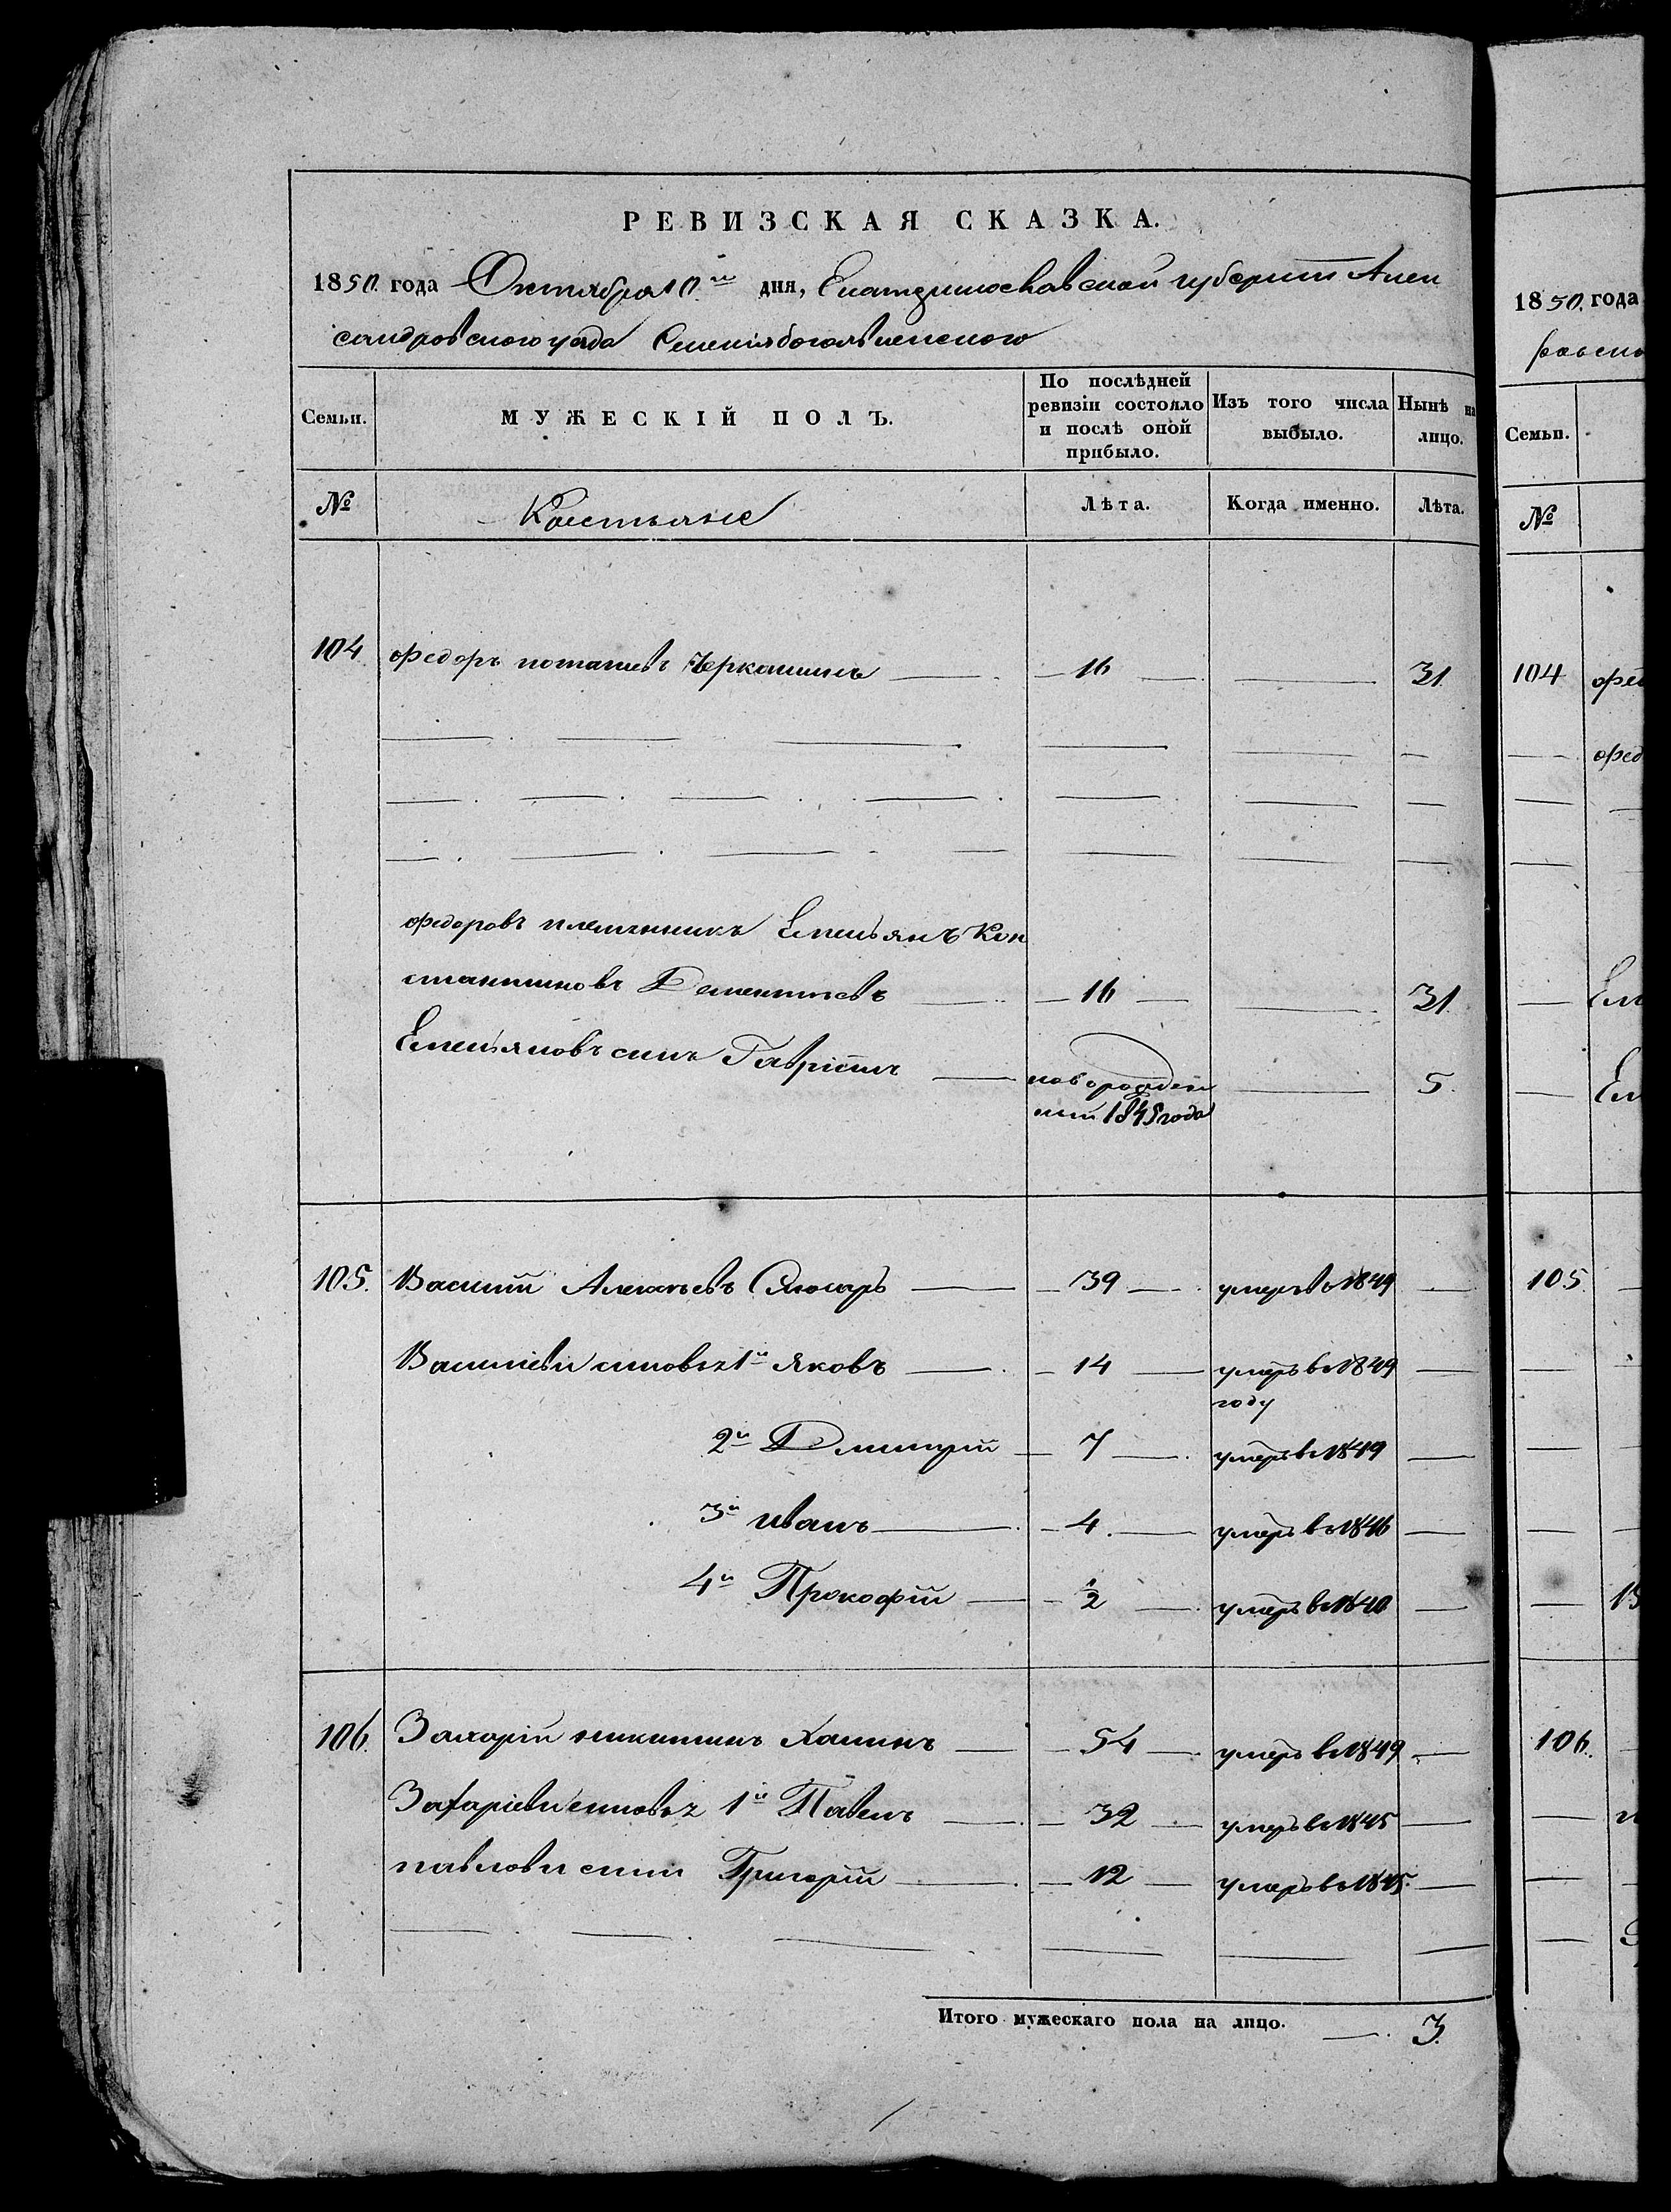 РЕВИЗСКАЯ СКАЗКА.
1850. года Октября 10.й дня, Екатеринославской губернии Алек
сандровского уезда Селения боголвленского
Семьи. МУЖЕСКІЙ ПОЛЪ. По послѣдней ревизіи состояло и послѣ оной прибыло. Изъ того числа выбыло. Нынѣ на лицо.
№ Лѣта. Когда именно. Лѣта.
104 федоръ потапиевъ Черкашинъ — 16 — 31.
федоровъ племянникъ Емельянъ Кон
стантиновъ Дементиевъ — 16 — 31.
Емельяновъ синъ Гавріилъ — новорожден
ний 1845 года — 5.
105. Василий Алексѣевъ Слюсаръ — 39 — умеръ въ 1849 —
Василіеви синовья 1й Яковъ — 14 — умеръ въ 1849 году —
2й Дмитрий — 7 — умеръ въ 1849 —
3й иванъ — 4. — умеръ въ 1846 —
4й Прокофій — 1/2 — умеръ въ 1840 —
106. Захарій никитинъ — 54 — умеръ въ 1849 —
Захаріеви синовья 1й Павелъ — 32 — умеръ въ 1845 —
павлови сини Григорій — 12 — умеръ въ 1845. —
Итого мужескаго пола на лицо. — 3.
1850. года
Семьи.
№
104
105.
106.